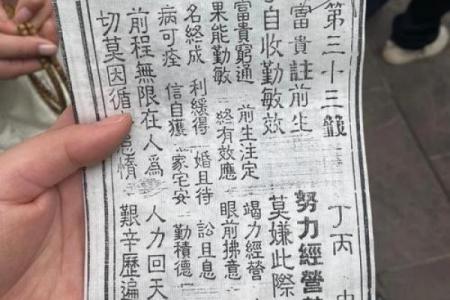 第三十三籤 丁丙
富貴註前生 努力經營
自收勤敏效 莫嫌此際
富貴窮通 前生注定 竭力經營
果能勤敏 終有效應 眼前拂意
名終成 利緩得 婚且待 訟且息
病可痊 信自獲 家宅安 勤積德
前程無限在人為 人力回天
切莫因循怠惰 艱辛歷遍